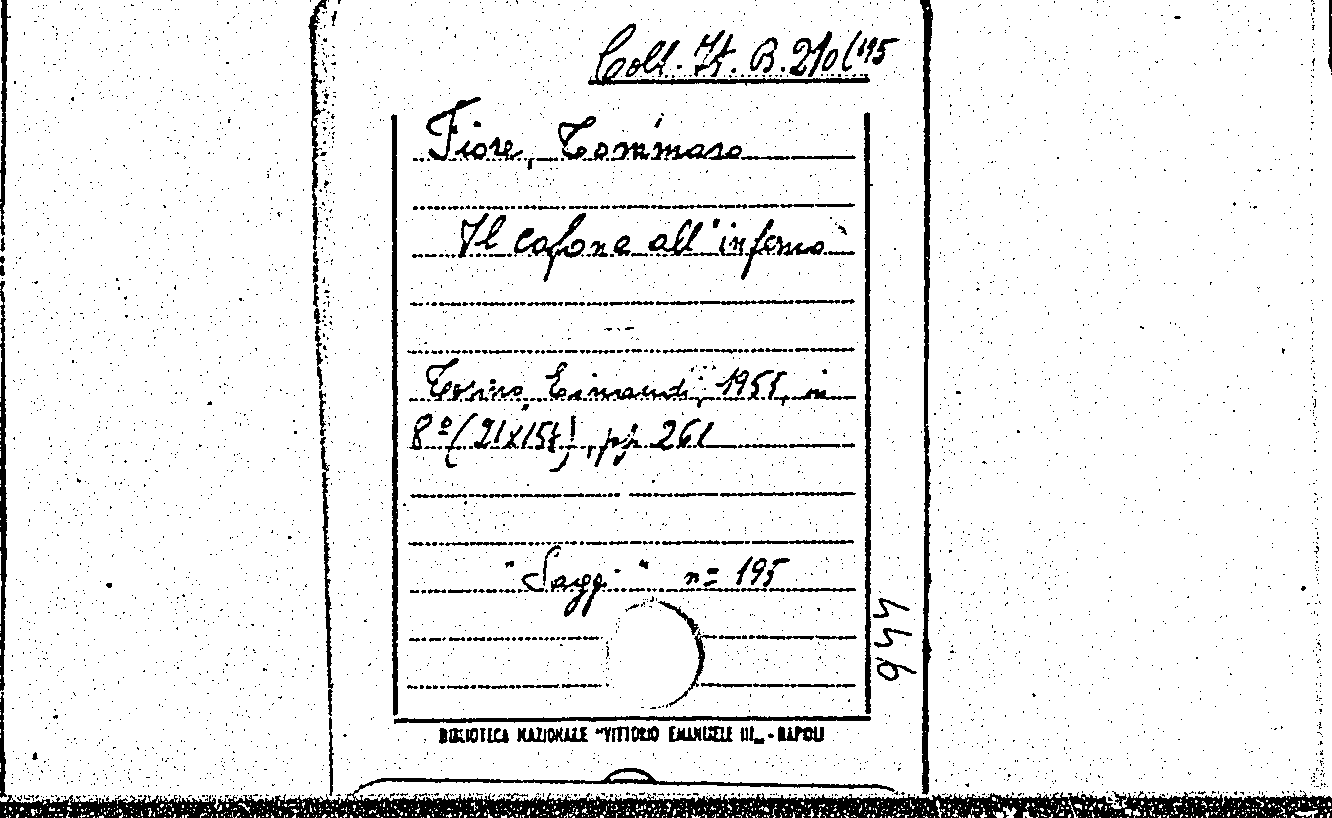 Coll. It. B. 210(195
Fiore, Tommaso
Il cafone all'inferno
Torino, Einaudi, 1955, in
8º (21x15½), pp. 261
"Saggi" n= 195
944
BIBLIOTECA NAZIONALE "VITTORIO EMANUELE III„ - NAPOLI